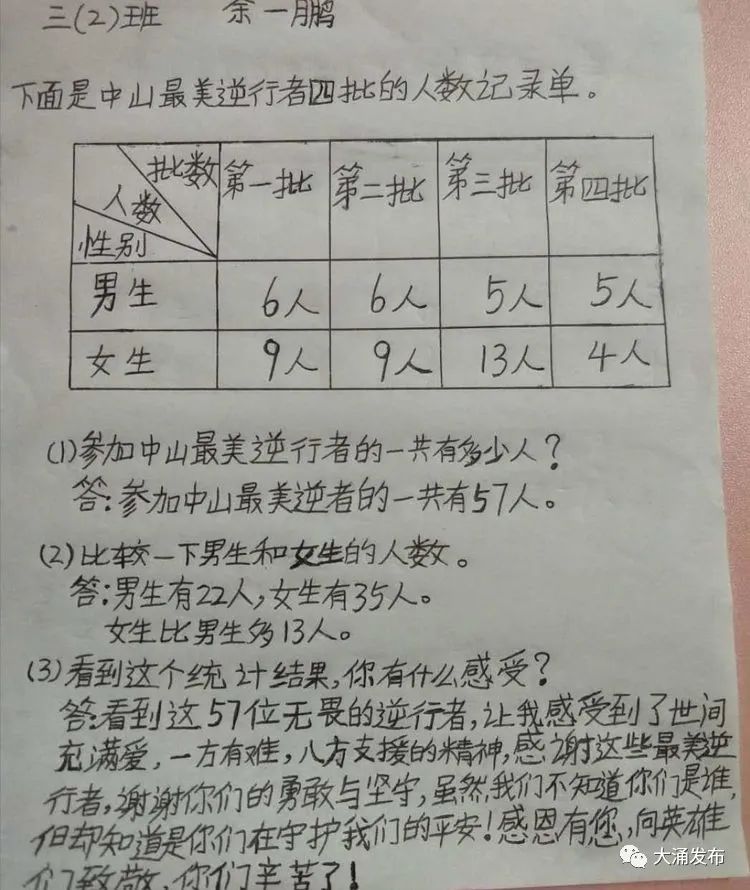 三(2)班 余一鹏
下面是中山最美逆行者四批的人数记录单。
批数 第一批 第二批 第三批 第四批
人数
性别
男生 6人 6人 5人 5人
女生 9人 9人 13人 4人
(1)参加中山最美逆行者的一共有多少人?
答:参加中山最美逆者的一共有57人。
(2)比较一下男生和女生的人数。
答:男生有22人,女生有35人。
女生比男生多13人。
(3)看到这个统计结果,你有什么感受?
答:看到这57位无畏的逆行者,让我感受到了世间
充满爱,一方有难,八方支援的精神,感谢这些最美逆
行者,谢谢你们的勇敢与坚守,虽然我们不知道你们是谁,
但却知道是你们在守护我们的平安!感恩有您,向英雄
们致敬,你们辛苦了!
大涌发布